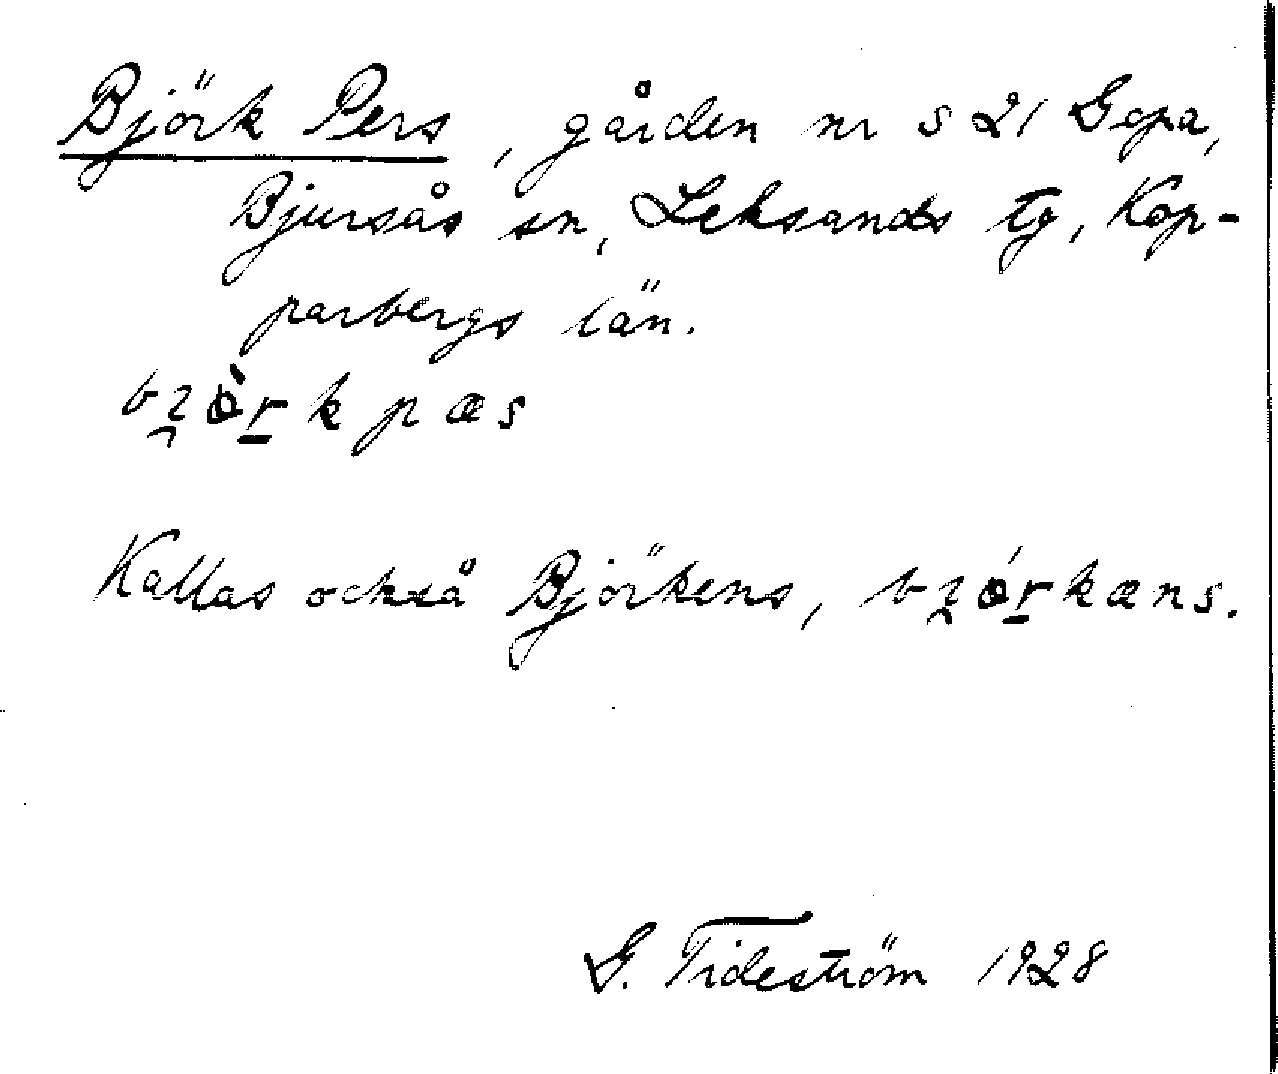 Björk Pers, gården nr s 21 Gopa,
Bjursås sn, Leksands tg, Kop-
parbergs län.
bʒ̯ò̱rk pæs
Kallas också Björkens, bʒ̯órkæns.
G. Tideström 1928